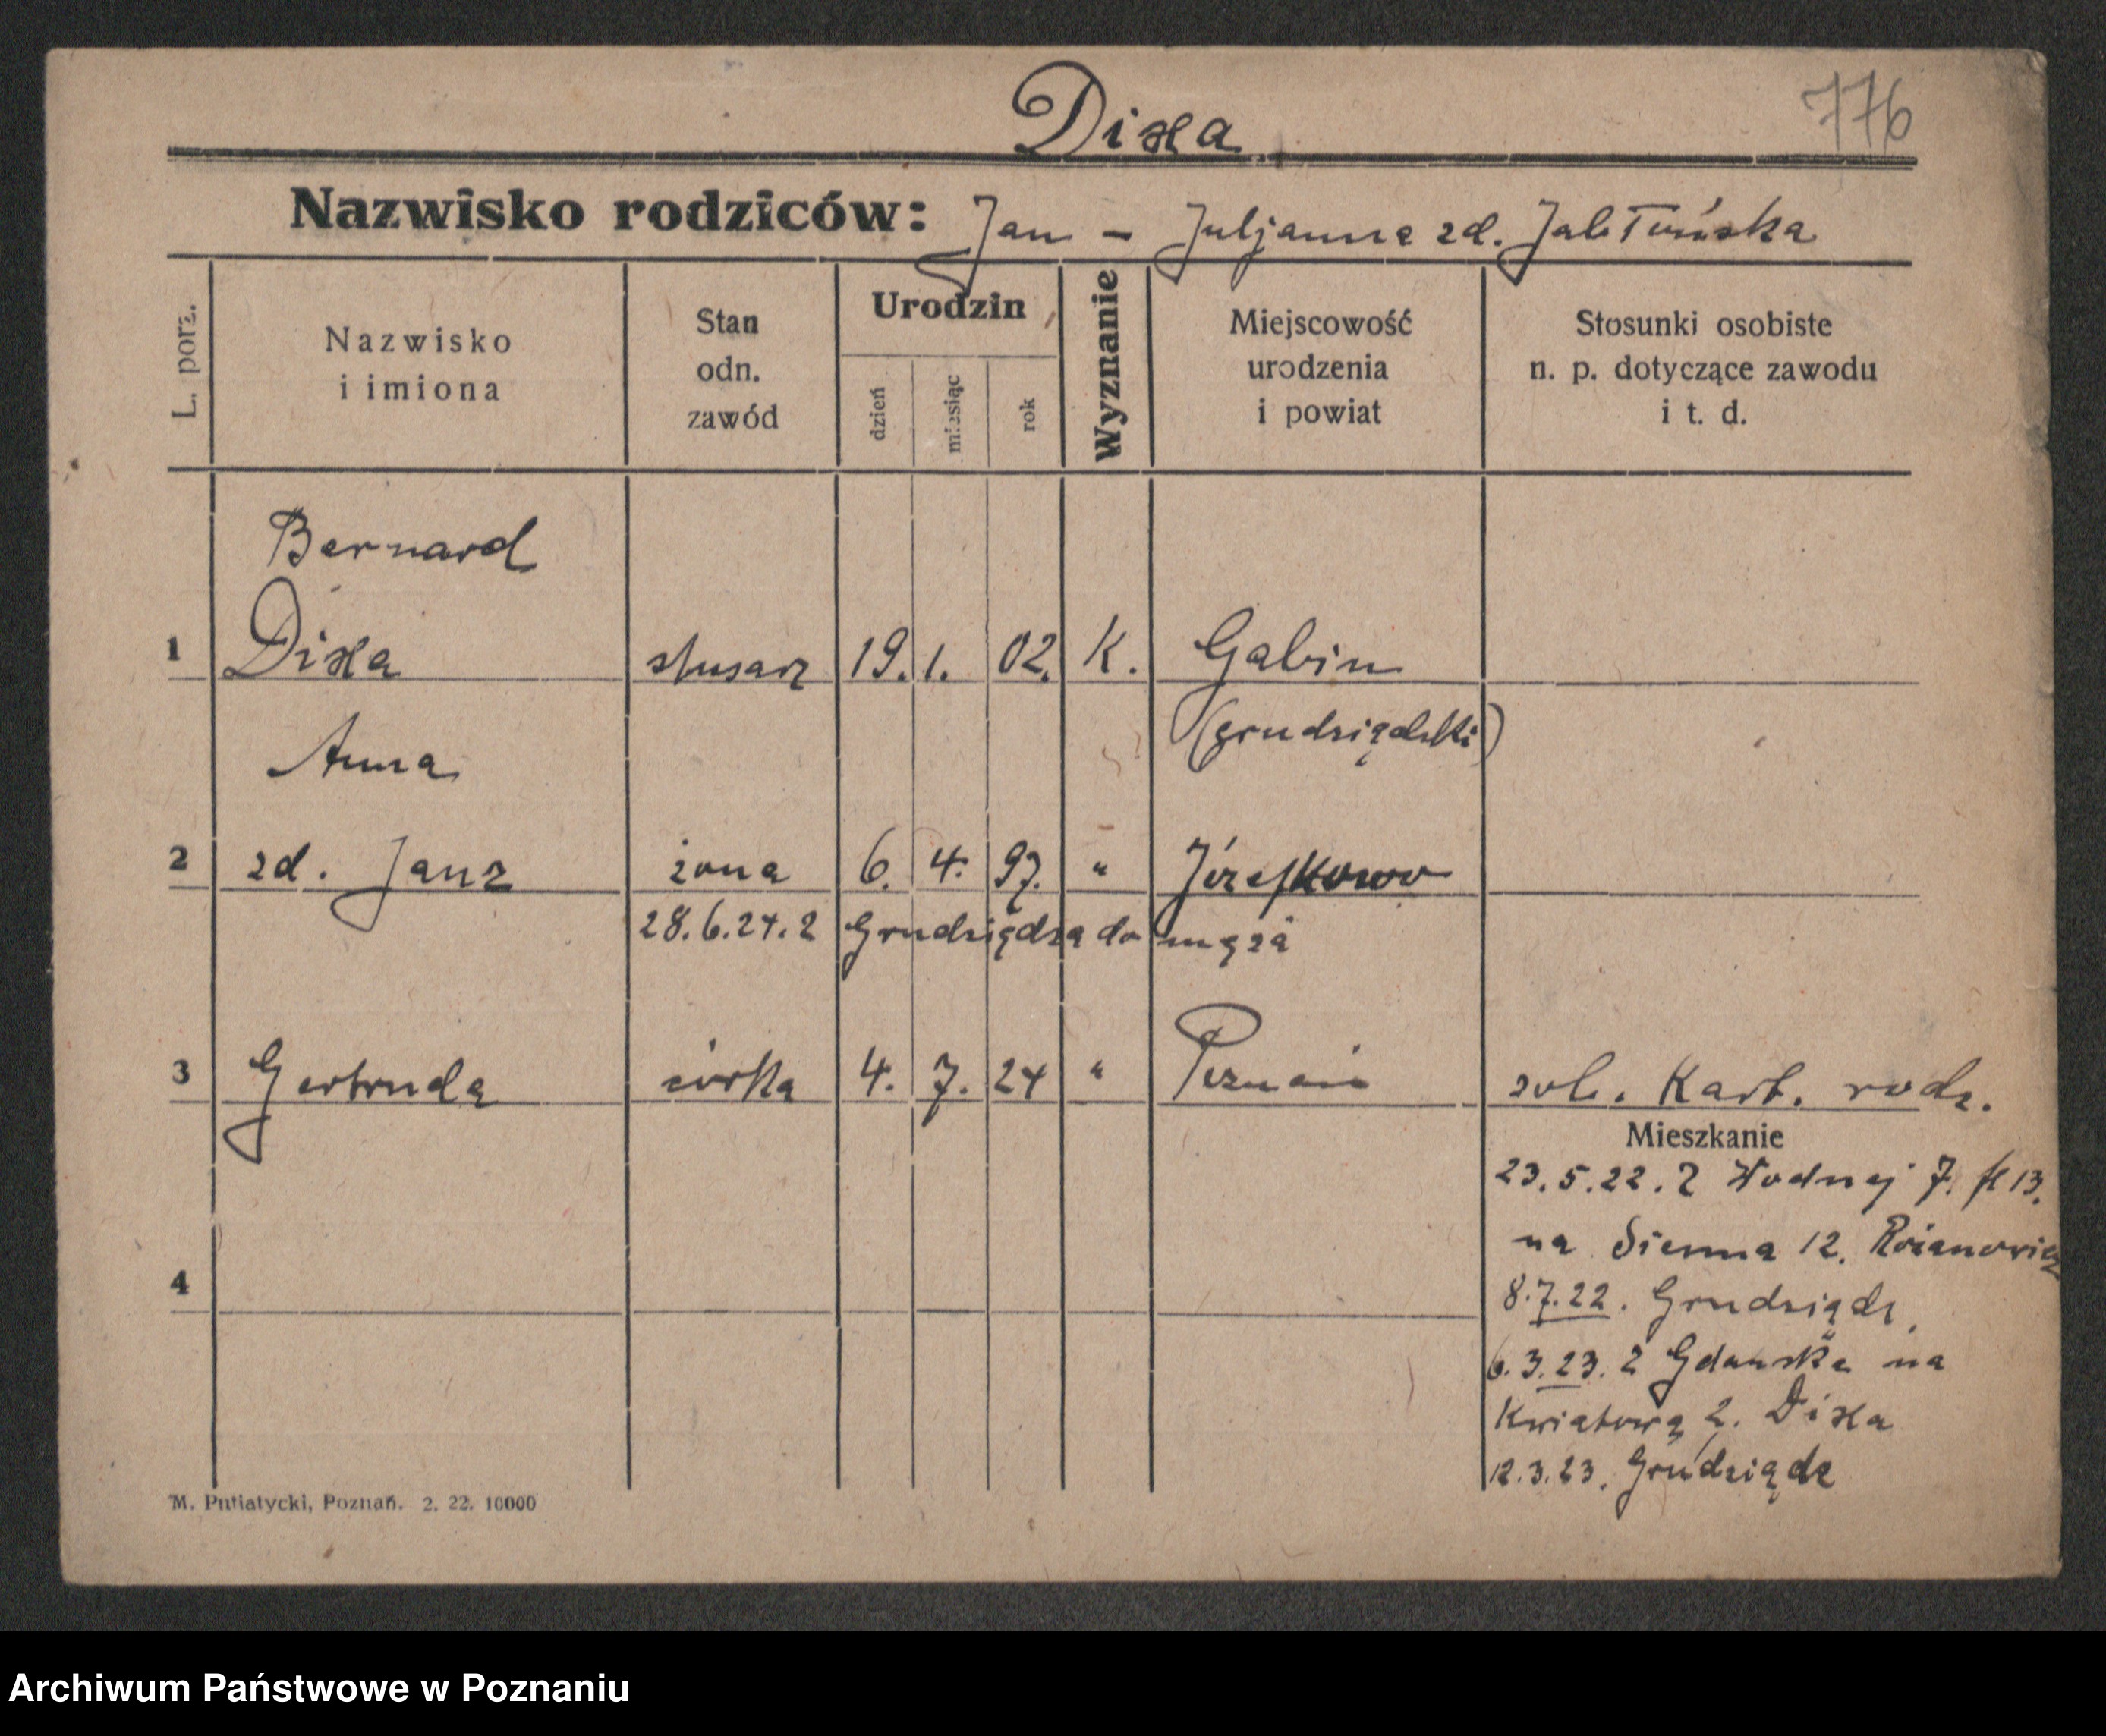 776
Diska
Nazwisko rodziców: Jan - Juljanna zd. Jabłońska
L. porz.
Nazwisko
i imiona
Stan
odn.
zawód
Urodzin
dzień
miesiąc
rok
Wyznanie
Miejscowość
urodzenia
i powiat
Stosunki osobiste
n. p. dotyczące zawodu
i t. d.
Bernard
1 Diska ślusarz 19. 1. 02. K. Gabin
(grudziądzki)
Anna
2 zd. Janz żona 6. 4. 97. " Józefkowo
28.6.24. z Grudziądza do męża
3 Gertruda córka 4. 7. 24 " Poznań zob. Kart. rodz.
Mieszkanie
23.5.22. z Wodnej 7. 13.
na Sienna 12.
8.7.22. Grudziądz
6.3.23. z Gdańska na
Kwiatową 2. Diska
12.3.23. Grudziądz
4
M. Putiatycki, Poznań. 2. 22. 10000
Archiwum Państwowe w Poznaniu